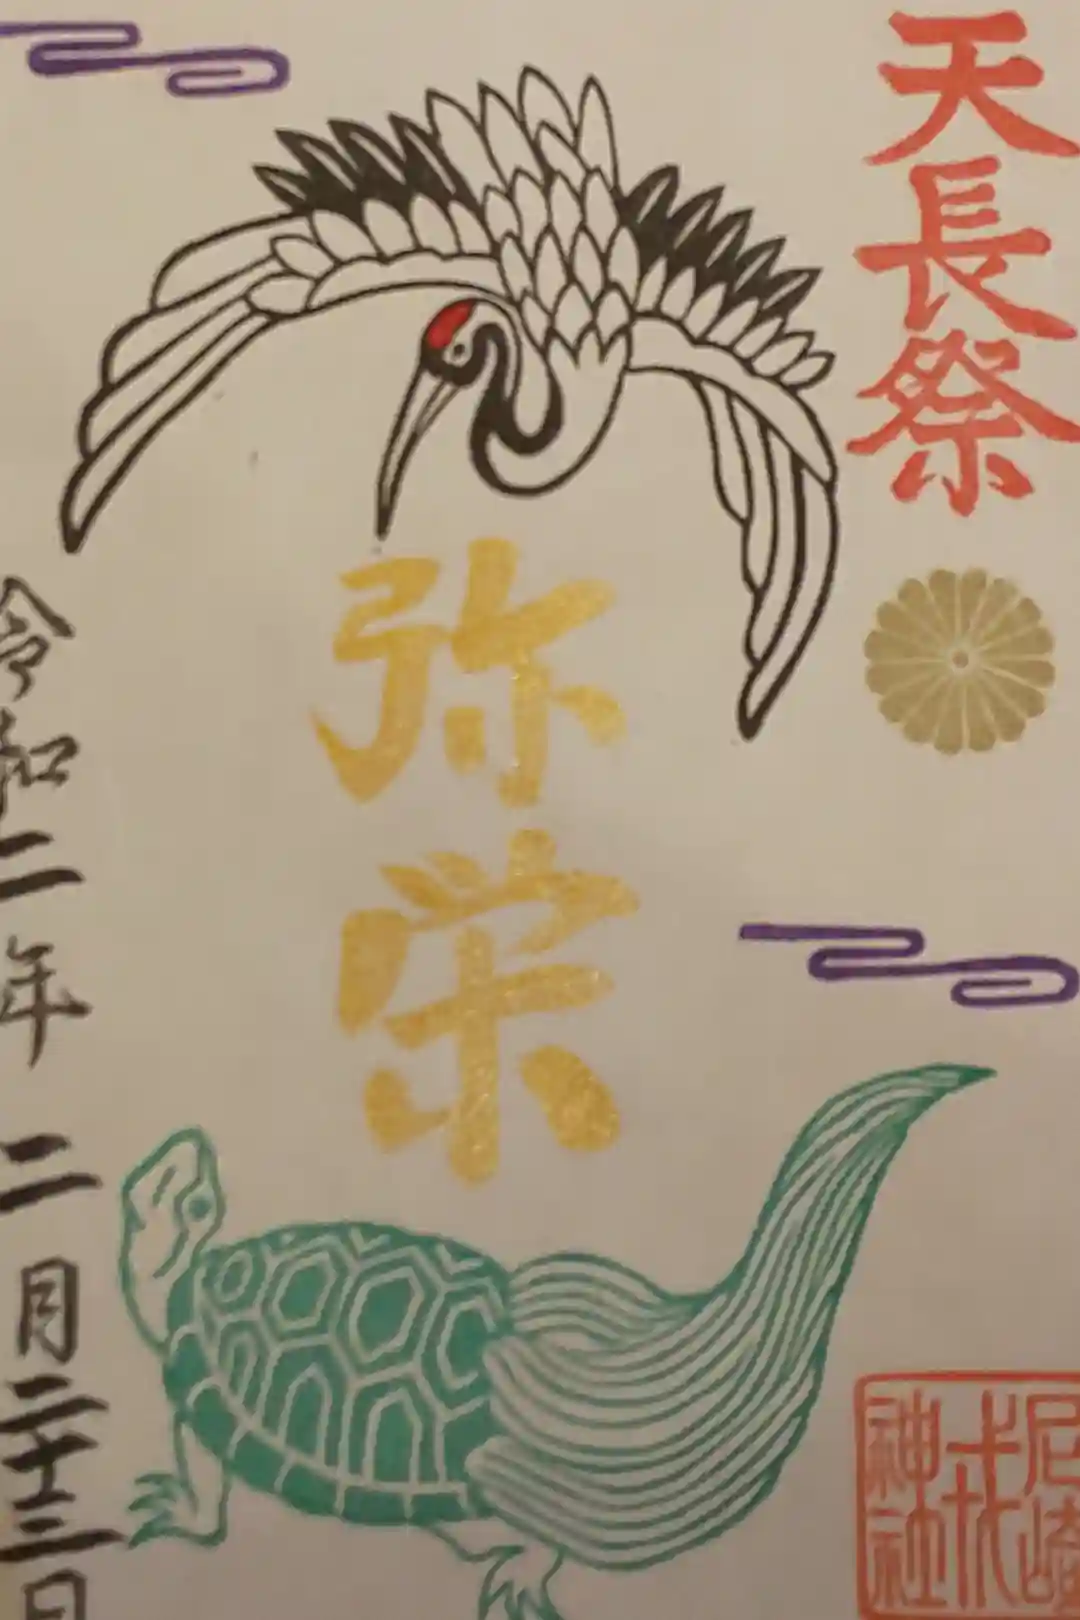 天長祭
弥栄
令和二年二月二十三日
尼崎
戎
神社